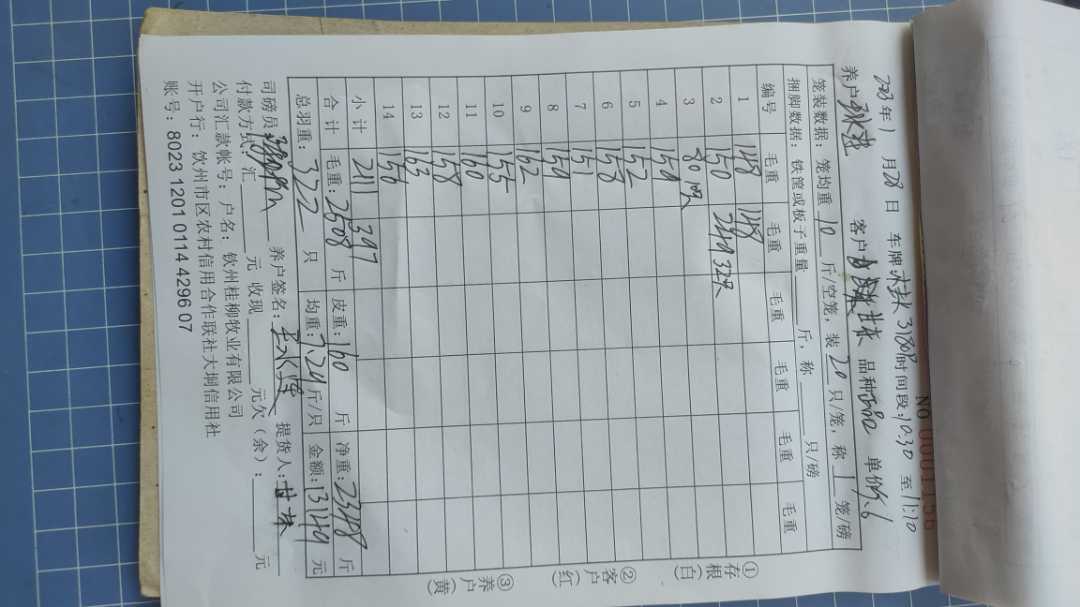 NO 0001156
2023年1月28日 车牌 3189时间段:10:30 至11:10
养户 客户 甘林 品种 单价:5.6
笼装数据:笼均重10斤/空笼,装20只/笼,称1笼/磅
捆脚数据:铁筐或板子重量 斤,称 只/磅
编号 毛重 毛重 毛重 毛重 毛重 毛重
1 148 148
2 150 249 32只
3
4 150
5 152
6 158
7 151
8 150
9 162
10 155
11 160
12 158
13 163
14 156
小计 2111 397
合计 毛重:2508斤 皮重:160斤 净重:2348斤
总羽重:322只 均重:7.29斤/只 金额:13149元
司磅员: 养户签名: 提货人:甘林
付款方式:汇 元 收现 元欠(余): 元
公司汇款帐号:户名:钦州桂柳牧业有限公司
开户行:钦州市区农村信用合作联社大垌信用社
账号:8023 1201 0114 4296 07
①存根(白)
②客户(红)
③养户(黄)